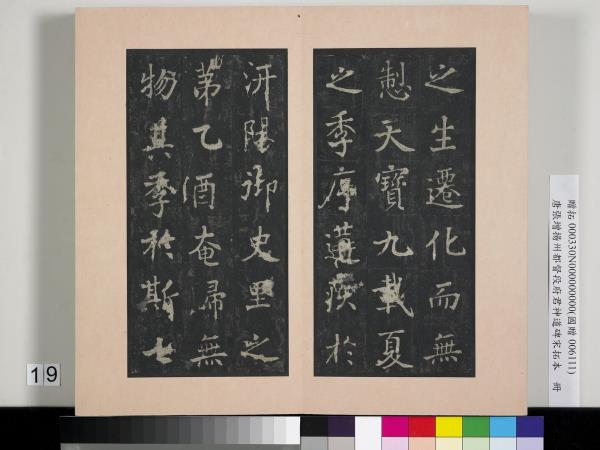 之生遷化而無
慙天寶九載夏
之季序遘疾於
汧陽御史里之
苐乙酒奄歸無
物其季於斯七
19
贈拓 000330N000000000(國贈 006111)
唐張增揚州都督段府君神道碑宋拓本 冊